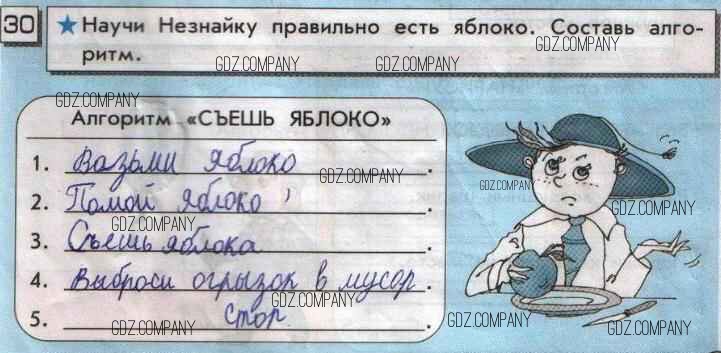 30 ★ Научи Незнайку правильно есть яблоко. Составь алго-
GDZ.COMPANY
ритм.
GDZ.COMPANY
GDZ.COMPANY
GDZ.COMPANY
Алгоритм «СЪЕШЬ ЯБЛОКО»
1. Возьми яблоко.
GDZ.COMPANY
GDZ.COMPANY
2. Помой яблоко.
GDZ.COMPANY
GDZ.COMPANY
3. Съешь яблока.
4. Выброси огрызок в мусор.
GDZ.COMPANY
5. стор.
GDZ.COMPANY
GDZ.COMPANY
GDZ.COMPANY